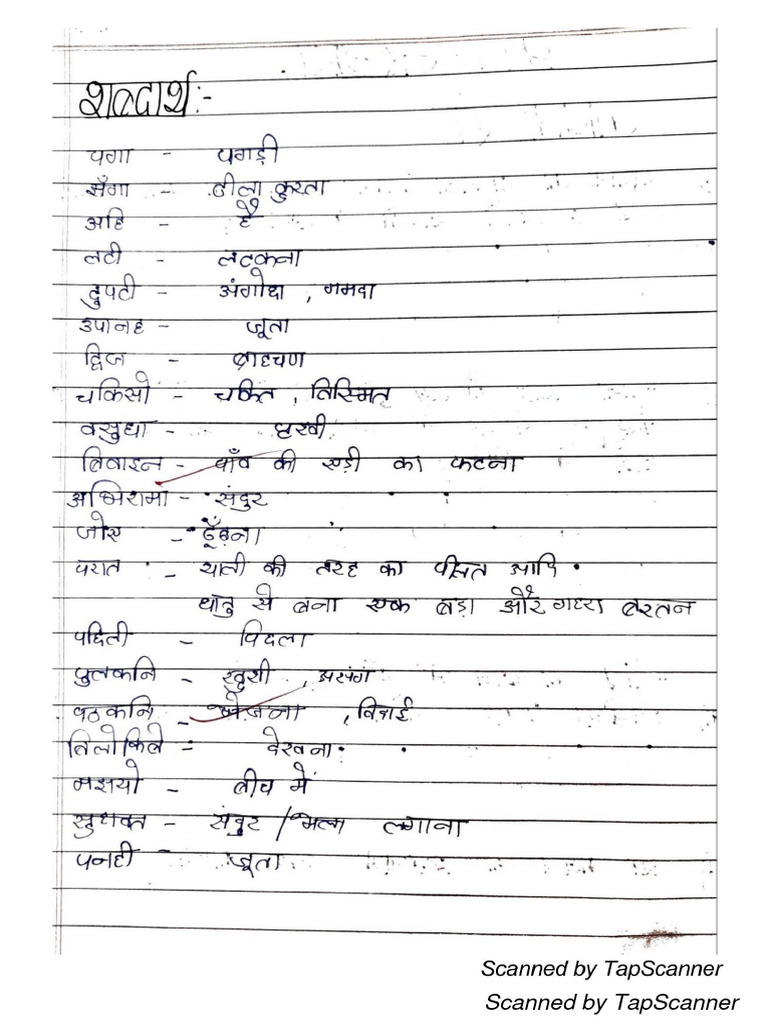 शब्दार्थ:-
पगा - पगड़ी
झँगा - ढीला कुरता
अहि - है
लटी - लटकना
दुपटी - अंगोछा , गमछा
उपानह - जूता
द्विज - ब्राह्मण
चकिसो - चकित , विस्मित
वसुधा - पृथ्वी
बिवाइन - पाँव की एड़ी का फटना
अभिरामा - सुंदर
जोए - ढूँढ़ना
परात - थाली की तरह का पीतल आदि
धातु से बना एक बड़ा और गहरा बरतन
पछिली - पिछला
पुलकनि - खुशी ,
पठकनि - भेजना , विदाई
बिलोकिबे - देखना
मझयो - बीच में
सुंदर / लगाना
पनही - जूता
Scanned by TapScanner
Scanned by TapScanner